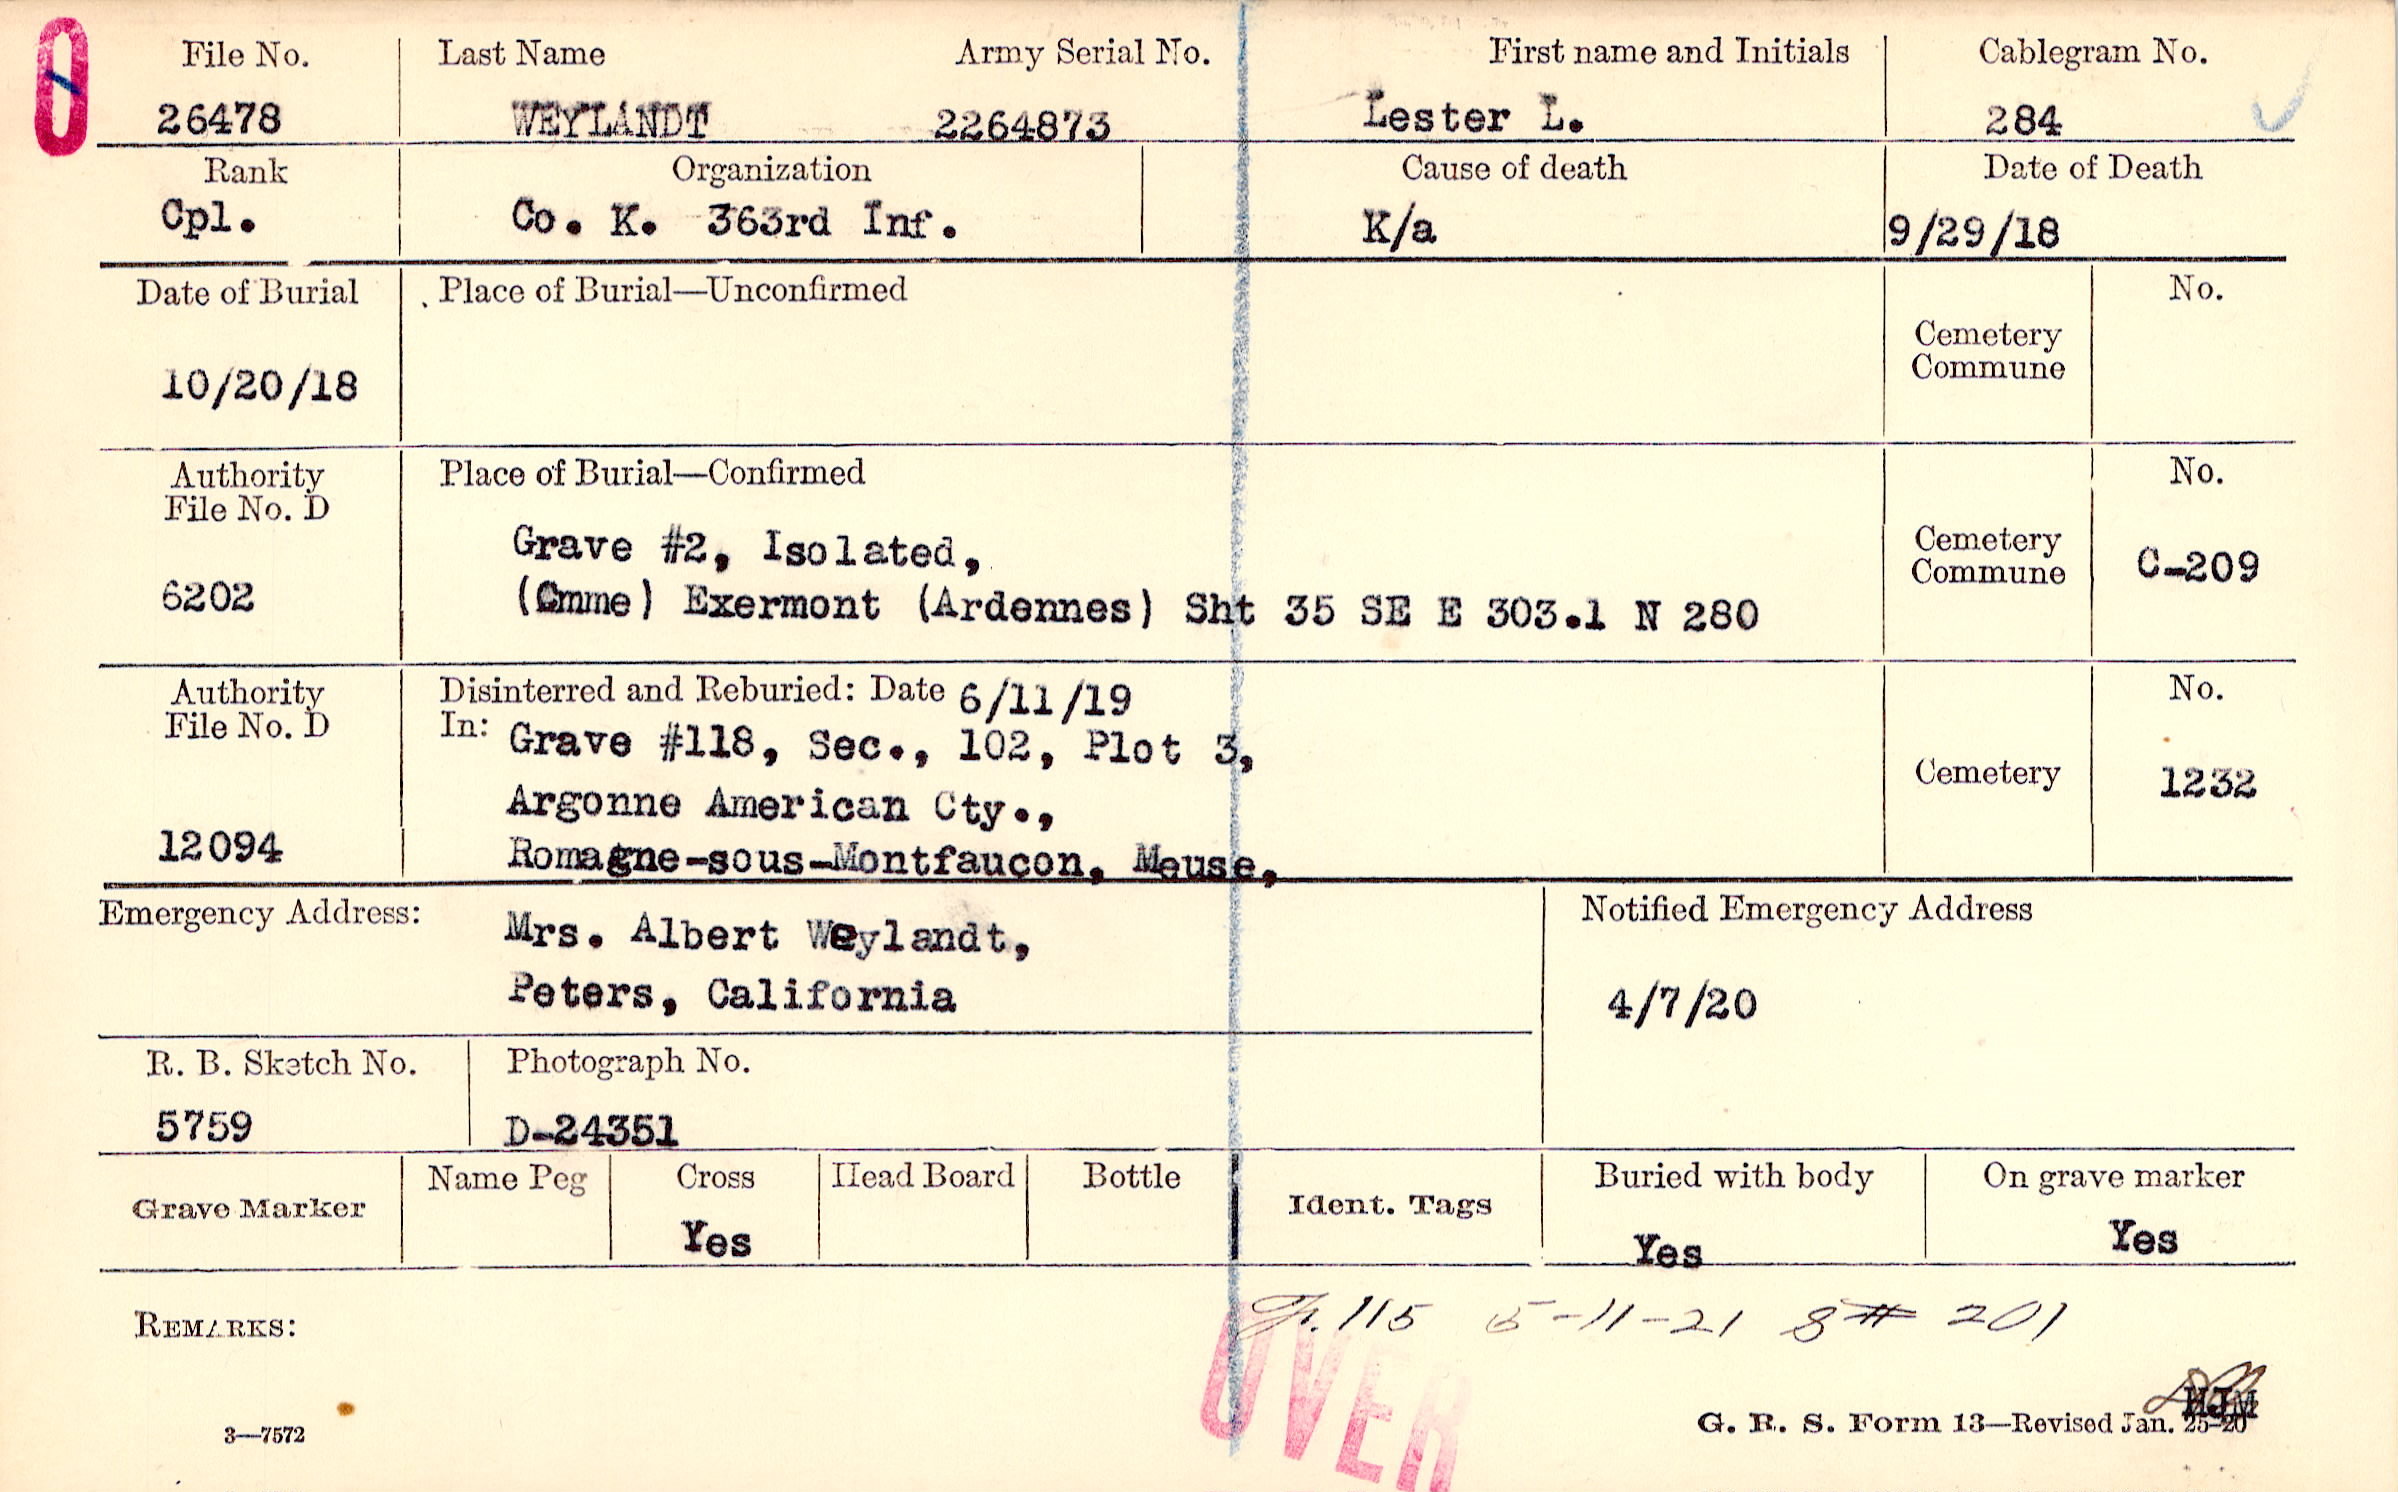 0
File No. Last Name Army Serial No. First name and Initials Cablegram No.
26478 WEYLANDT 2264873 Lester L. 284
Rank Organization Cause of death Date of Death
Cpl. Co. K. 363rd Inf. K/a 9/29/18
Date of Burial Place of Burial—Unconfirmed No.
Cemetery
Commune
10/20/18
Authority Place of Burial—Confirmed No.
File No. D
Grave #2, Isolated, Cemetery
Commune C-209
6202 (Cmme) Exermont (Ardennes) Sht 35 SE E 303.1 N 280
Authority Disinterred and Reburied: Date 6/11/19 No.
File No. D In: Grave #118, Sec., 102, Plot 3,
Cemetery 1232
Argonne American Cty.,
12094 Romagne-sous-Montfaucon, Meuse,
Emergency Address: Mrs. Albert Weylandt, Notified Emergency Address
Peters, California 4/7/20
R. B. Sketch No. Photograph No.
5759 D-24351
Grave Marker Name Peg Cross Head Board Bottle Ident. Tags Buried with body On grave marker
Yes Yes Yes
REMARKS: 115 5-11-21 8# 201
OVER
HJM
3—7572 G. R. S. Form 13—Revised Jan. 25-20